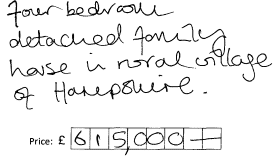 four bedroom
detached family
house in rural village
of Hampshire.
Price: £ 615,000